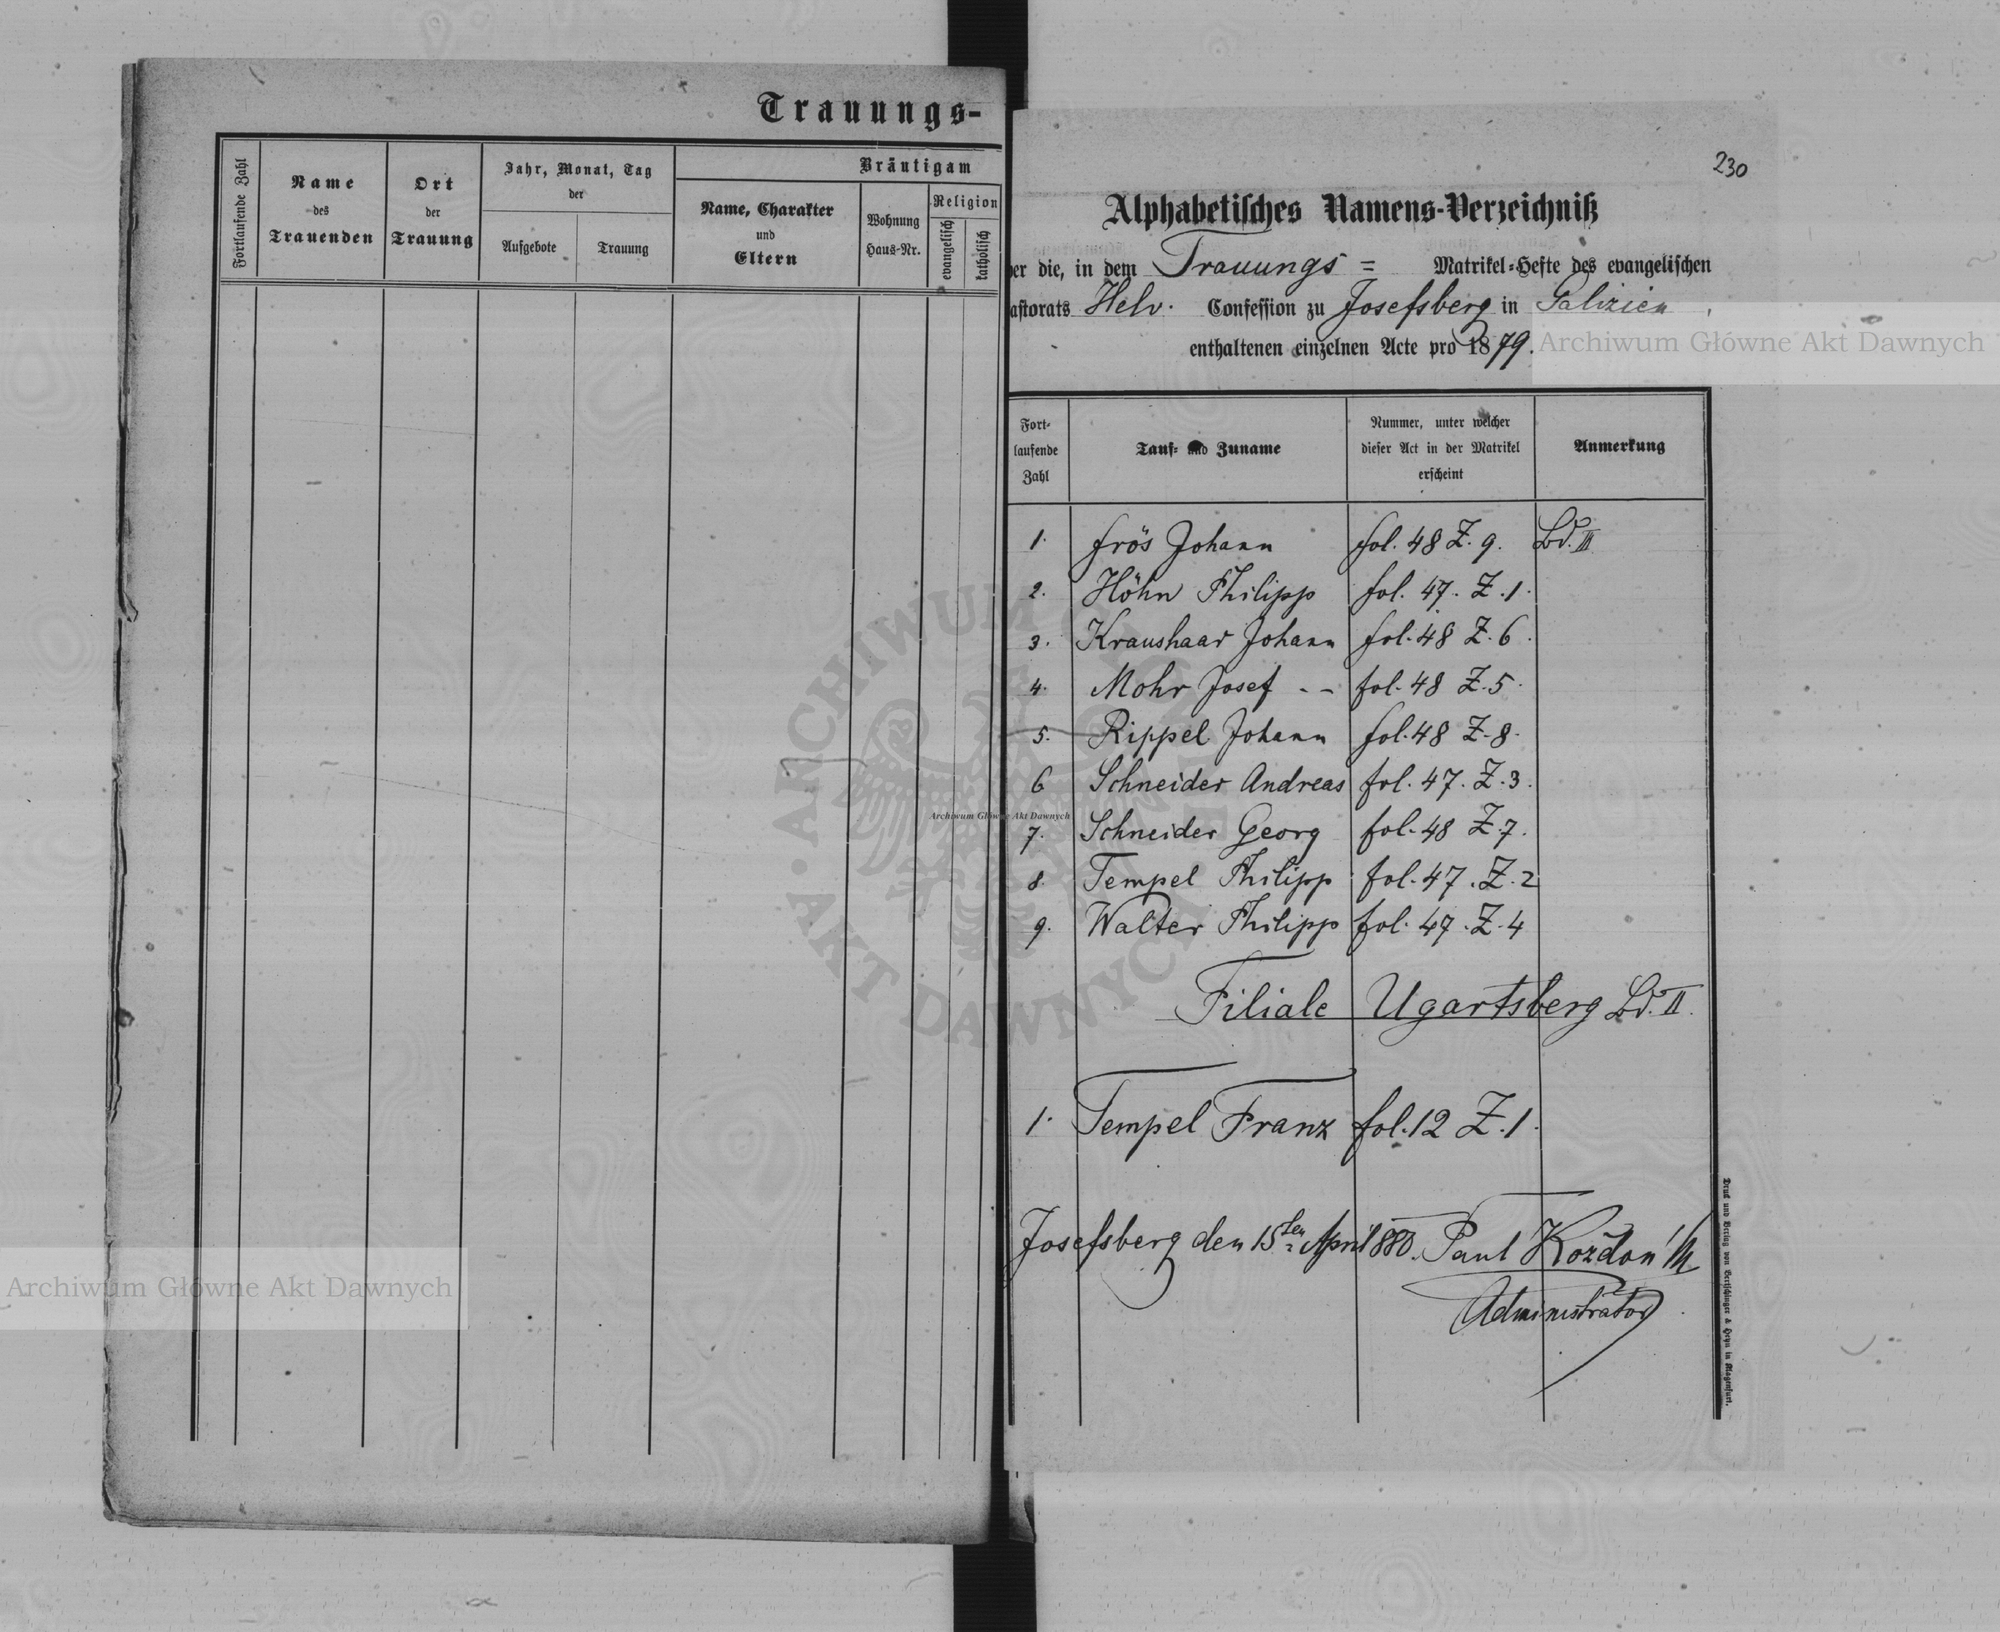 Trauungs-
Fortlaufende Zahl
Name
des
Trauenden
Ort
der
Trauung
Jahr, Monat, Tag
der
Aufgebote
Trauung
Bräutigam
Name, Charakter
und
Eltern
Wohnung
Haus-Nr.
Religion
evangelisch
katholisch
230
Alphabetisches Namens-Verzeichniß
er die, in dem Trauungs = Matrikel-Hefte des evangelischen
astorats Helv. Confession zu Josefsberg in Galizien
enthaltenen einzelnen Acte pro 1879.
Archiwum Główne Akt Dawnych
Fort-
laufende
Zahl
Tauf- und Zuname
Nummer, unter welcher
dieser Act in der Matrikel
erscheint
Anmerkung
1. Frös Johann fol. 48 Z. 9. Bd. III
2. Höhn Philipp fol. 47. Z. 1.
3. Kraushaar Johann fol. 48 Z. 6.
4. Mohr Josef - - fol. 48 Z. 5.
5. Rippel Johann fol. 48 Z. 8.
6 Schneider Andreas fol. 47. Z. 3.
7. Schneider Georg fol. 48 Z. 7.
8. Tempel Philipp fol. 47. Z. 2
9. Walter Philipp fol. 47. Z. 4
Filiale Ugartsberg Bd. II.
1. Tempel Franz fol. 12 Z. 1.
Josefsberg den 15ten April 880. Paul Koždon
Administrator
Druck und Verlag von Bertschinger & Heyn in Klagenfurt.
ARCHIWUM GŁÓWNE
AKT DAWNYCH
Archiwum Główne Akt Dawnych
Archiwum Główne Akt Dawnych